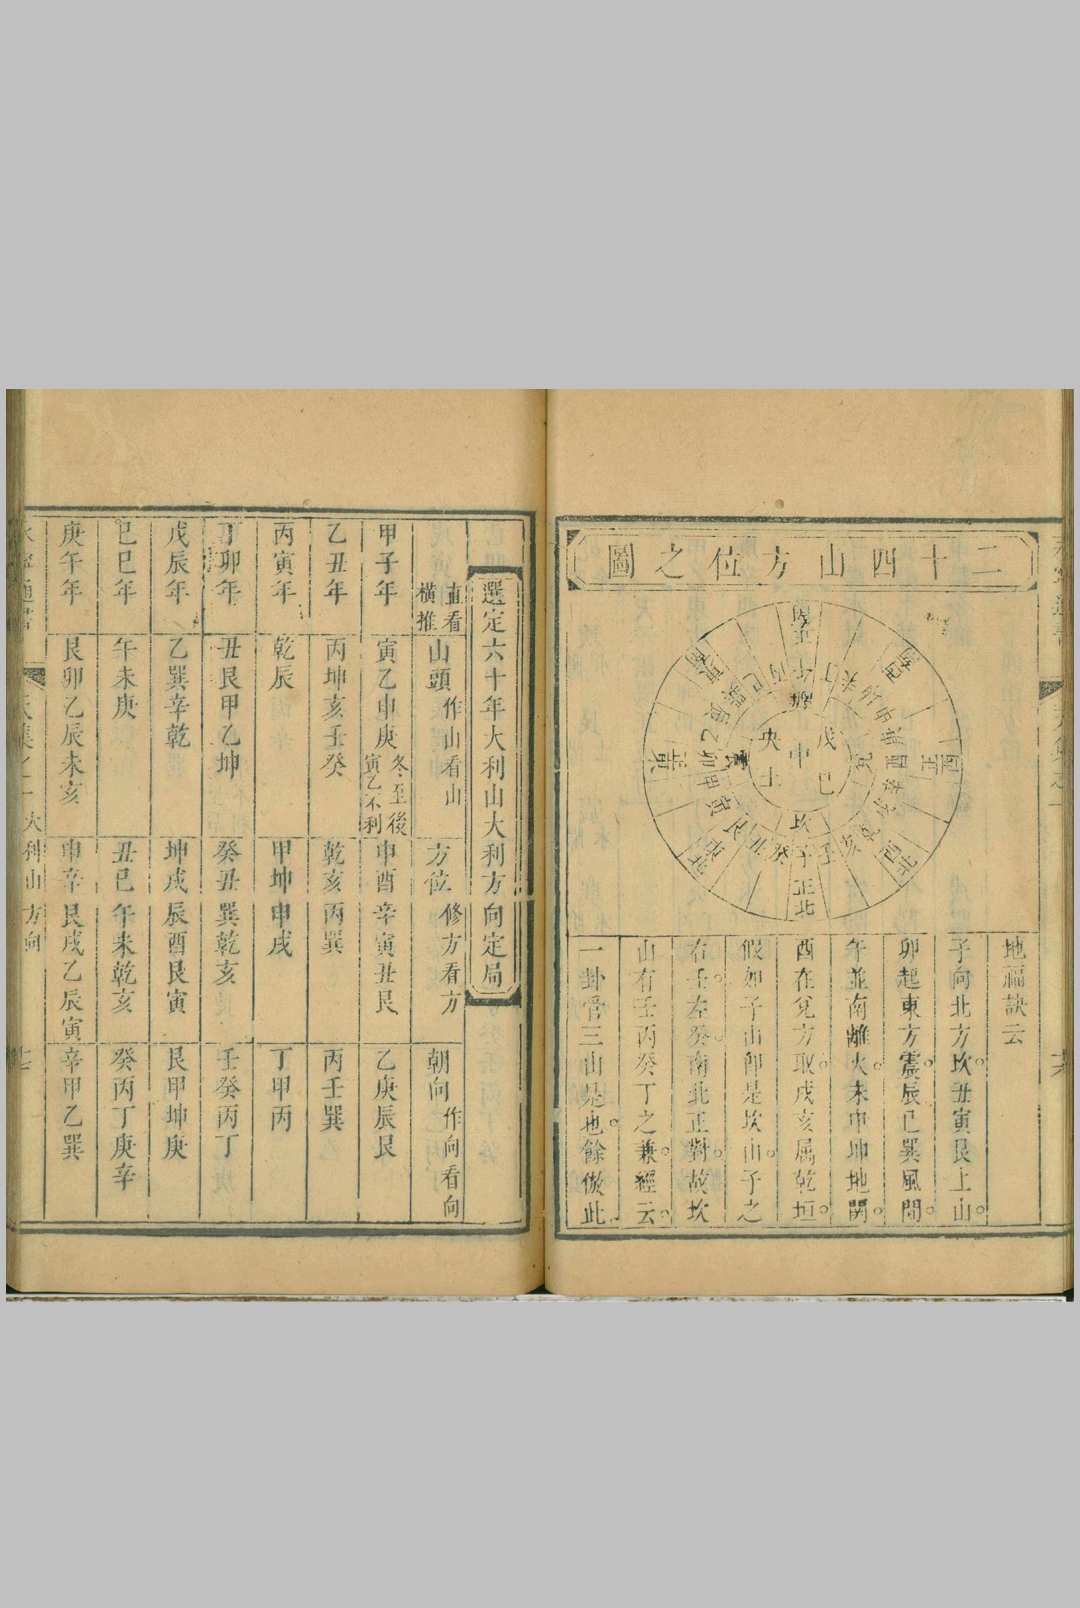 二十四山方位之圖
中央戊巳土
地福訣云
子向北方坎丑寅艮上山
卯起東方震辰巳巽風間
午並南離火未申坤地関
酉在兌方取戌亥属乾垣
假如子山卽是坎山子之
右壬左癸南北正對故坎
山有壬丙癸丁之兼經云
一卦管三山是也餘倣此
選定六十年大利山大利方向定局
直看橫推
山頭作山看山
方位修方看方
朝向作向看向
甲子年
寅乙申庚冬至後寅乙不利
申酉辛寅丑艮
乙庚辰艮
乙丑年
丙坤亥壬癸
乾亥丙巽
丙壬巽
丙寅年
乾辰
甲坤申戌
丁甲丙
丁卯年
丑艮甲乙坤
癸丑巽乾亥
壬癸丙丁
戊辰年
乙巽辛乾
坤戌辰酉艮寅
艮甲坤庚
巳巳年
午未庚
丑巳午未乾亥
癸丙丁庚辛
庚午年
艮卯乙辰未亥
申辛艮戌乙辰寅
辛甲乙巽
大利山方向